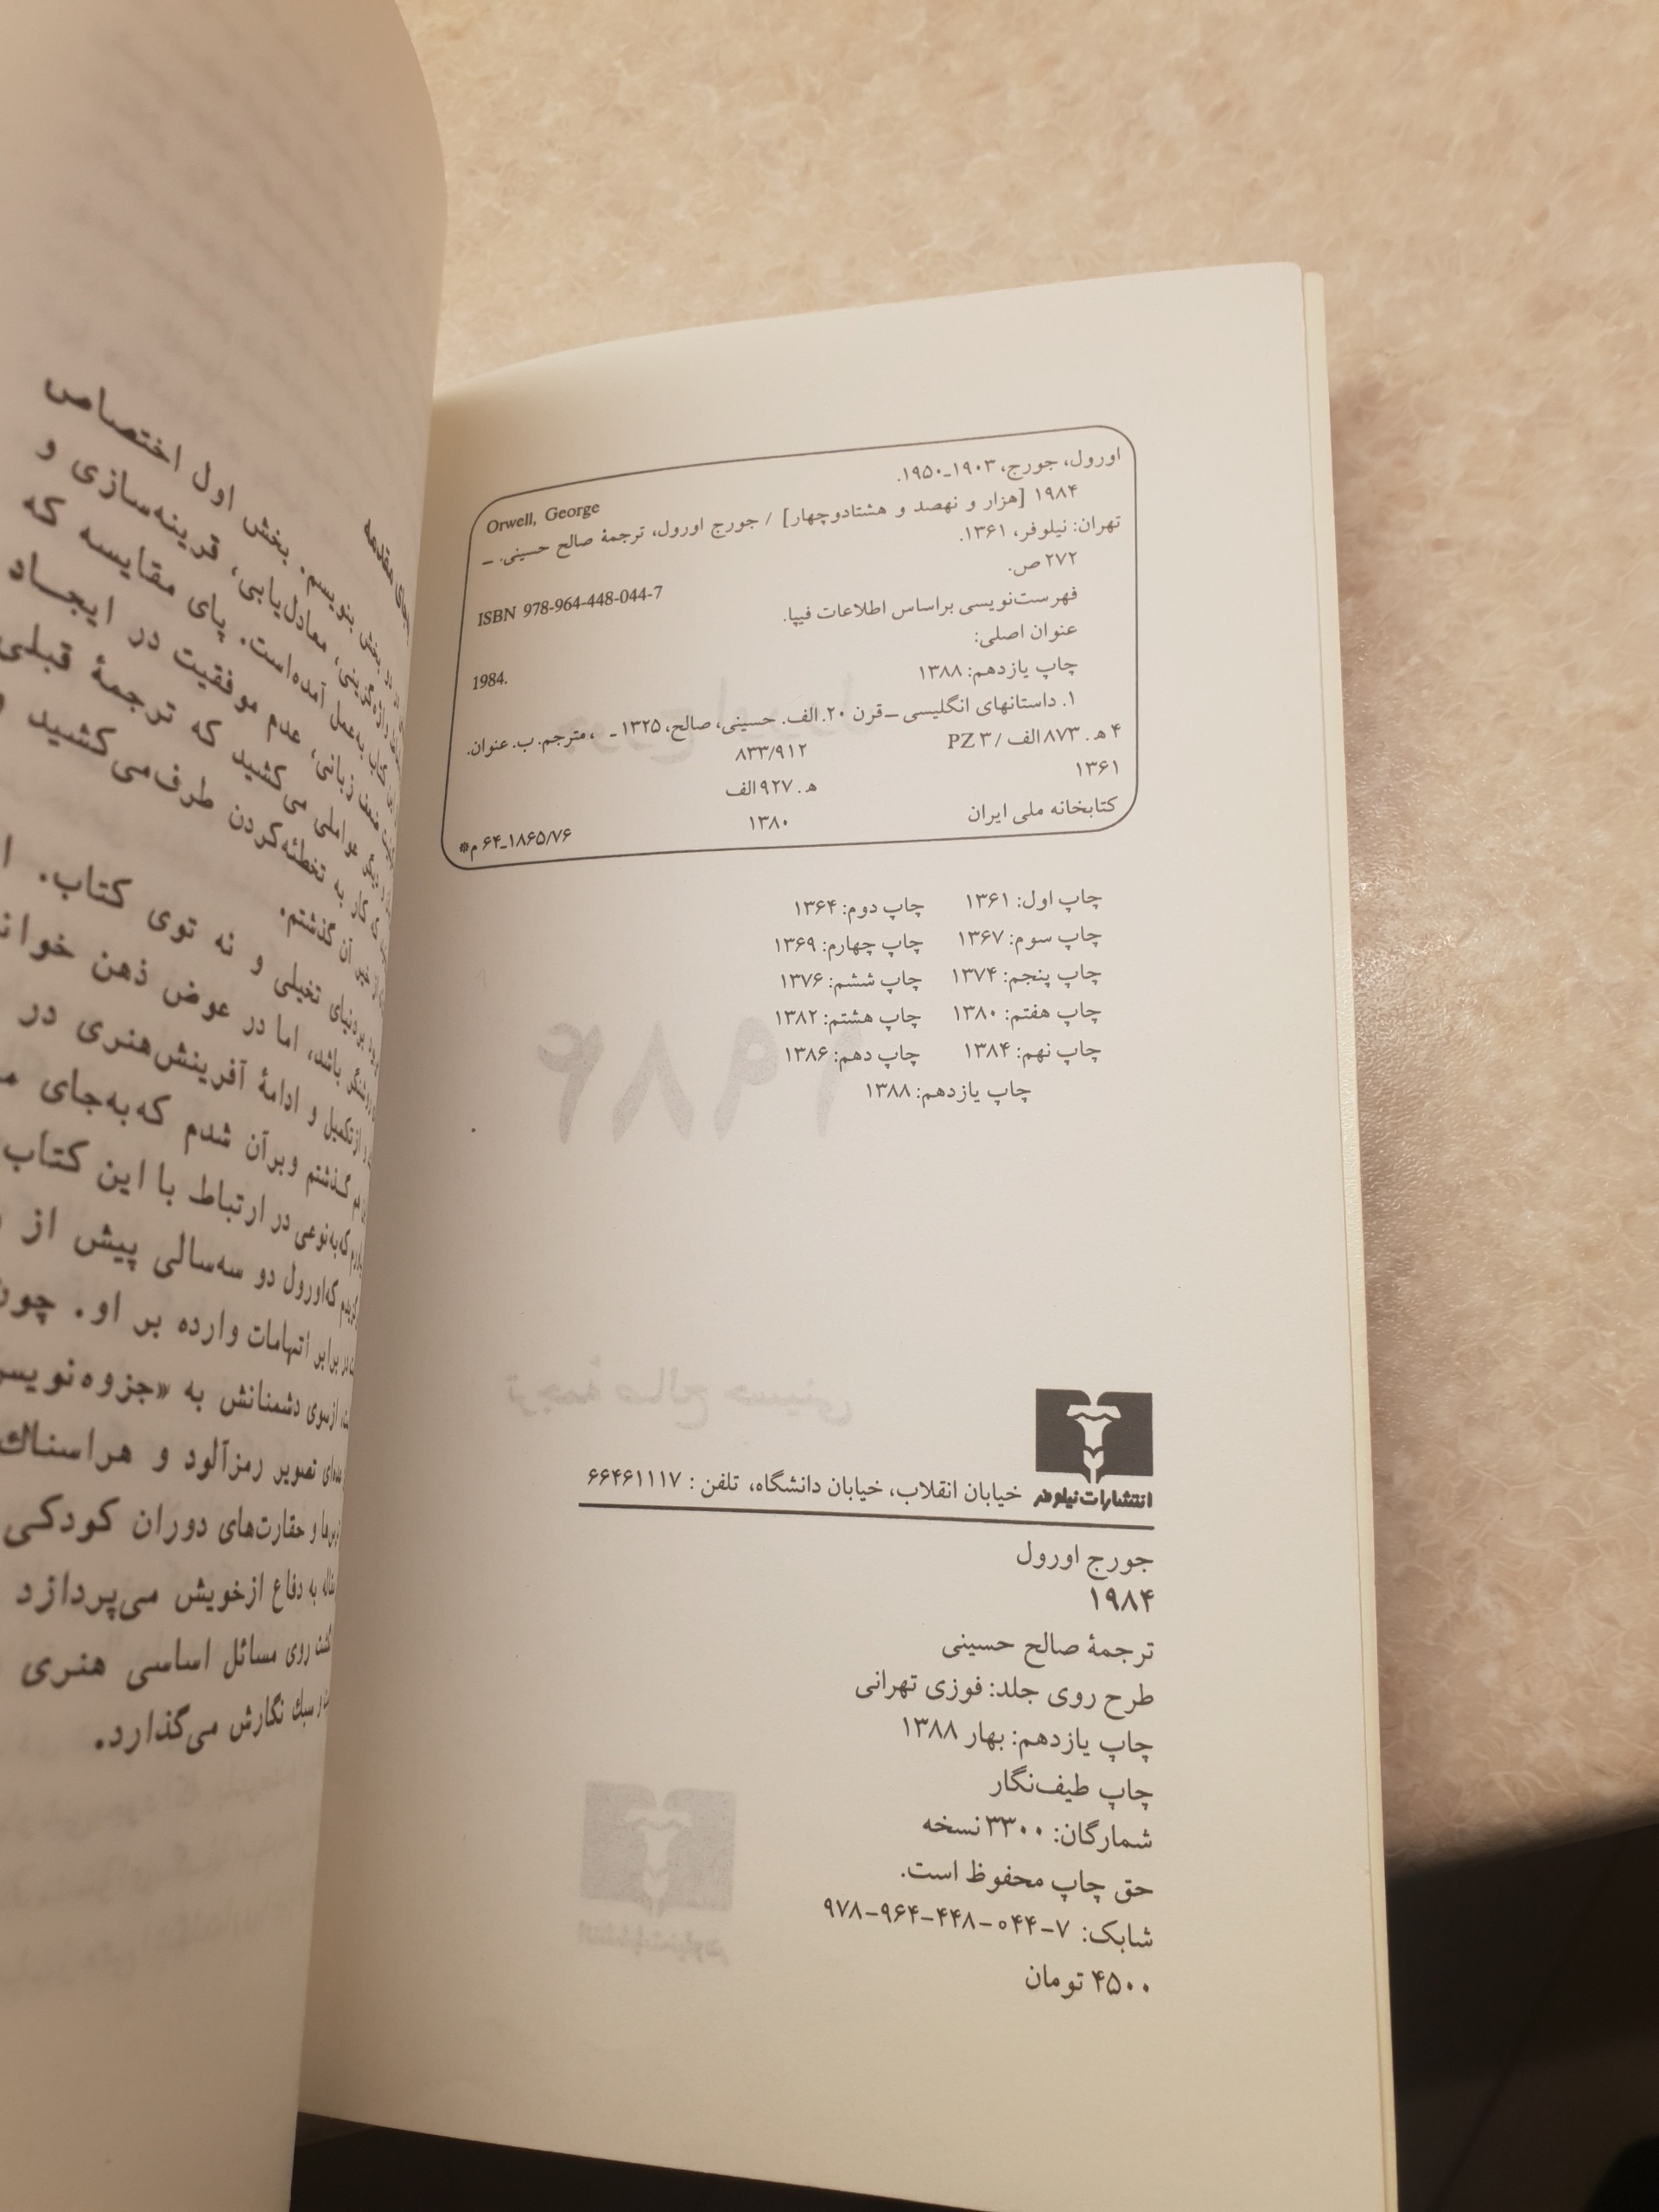 اورول، جورج، ۱۹۰۳ـ۱۹۵۰.
Orwell, George
۱۹۸۴ [هزار و نهصد و هشتادوچهار] / جورج اورول، ترجمهٔ صالح حسینی. ـ
تهران: نیلوفر، ۱۳۶۱.
۲۷۲ ص.
ISBN 978-964-448-044-7
فهرست‌نویسی براساس اطلاعات فیپا.
عنوان اصلی:
1984.
چاپ یازدهم: ۱۳۸۸
۱. داستانهای انگلیسی ـ قرن ۲۰. الف. حسینی، صالح، ۱۳۲۵ ـ ، مترجم. ب. عنوان.
۴ ه‍. ۸۷۳الف / PZ ۳ ۸۳۳/۹۱۲
۱۳۶۱ ه‍. ۹۲۷الف
کتابخانه ملی ایران ۱۳۸۰ ۶۴ـ۱۸۶۵/۷۶ م*
چاپ اول: ۱۳۶۱ چاپ دوم: ۱۳۶۴
چاپ سوم: ۱۳۶۷ چاپ چهارم: ۱۳۶۹
چاپ پنجم: ۱۳۷۴ چاپ ششم: ۱۳۷۶
چاپ هفتم: ۱۳۸۰ چاپ هشتم: ۱۳۸۲
چاپ نهم: ۱۳۸۴ چاپ دهم: ۱۳۸۶
چاپ یازدهم: ۱۳۸۸
انتشارات نیلوفر خیابان انقلاب، خیابان دانشگاه، تلفن : ۶۶۴۶۱۱۱۷
جورج اورول
۱۹۸۴
ترجمهٔ صالح حسینی
طرح روی جلد: فوزی تهرانی
چاپ یازدهم: بهار ۱۳۸۸
چاپ طیف‌نگار
شمارگان: ۳۳۰۰ نسخه
حق چاپ محفوظ است.
شابک: ۷-۰۴۴-۴۴۸-۹۶۴-۹۷۸
۴۵۰۰ تومان
بخش بنویسم. بخش اول اختصاص
معادل‌یابی، قرینه‌سازی و
به‌عمل آمده‌است. پای مقایسه که
زبانی، عدم موفقیت در ایجاد
عواملی می‌کشید که ترجمهٔ قبلی
کار به تخطئه‌کردن طرف‌می‌کشید
آن گذشتم.
دنیای تخیلی و نه توی کتاب.
باشد، اما در عوض ذهن
ازتکمیل و ادامهٔ آفرینش‌هنری در
گذشتم وبرآن شدم که‌به‌جای
که‌به‌نوعی در ارتباط با این کتاب
که‌اورول دو سه‌سالی پیش از
برابر اتهامات وارده بر او. چون
ازسوی دشمنانش به «جزوه‌نویس
تصویر رمزآلود و هراسناك
و حقارت‌های دوران کودکی
به دفاع ازخویش می‌پردازد
روی مسائل اساسی هنری
و سبك نگارش می‌گذارد.